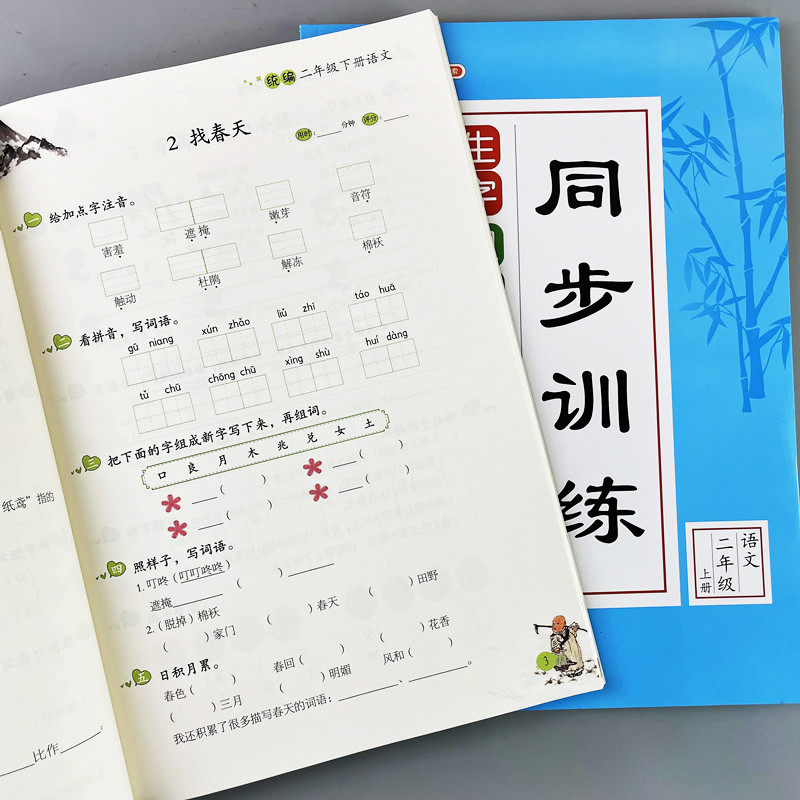 统编 二年级下册语文
2 找春天
用时:____分钟 评分:____
一 给加点字注音。
害羞 遮掩 嫩芽 音符
触动 杜鹃 解冻 棉袄
二 看拼音，写词语。
gū niang xún zhǎo liǔ zhī táo huā
tǔ chū chōng chū xìng shù huí dàng
三 把下面的字组成新字写下来，再组词。
口 良 月 木 兆 兑 女 土
____( ) ____( )
____( ) ____( )
四 照样子，写词语。
1. 叮咚（叮叮咚咚） ( )____
遮掩____
2.（脱掉）棉袄 ( )田野
( )家门 ( )春天
( )花香
五 日积月累。
春色( ) 春回( ) 风和( )
( )三月 ( )明媚
我还积累了很多描写春天的词语：____、____。
3
纸鸢”指的
____比作____。
生字
同步训练
语文
二年级
上册